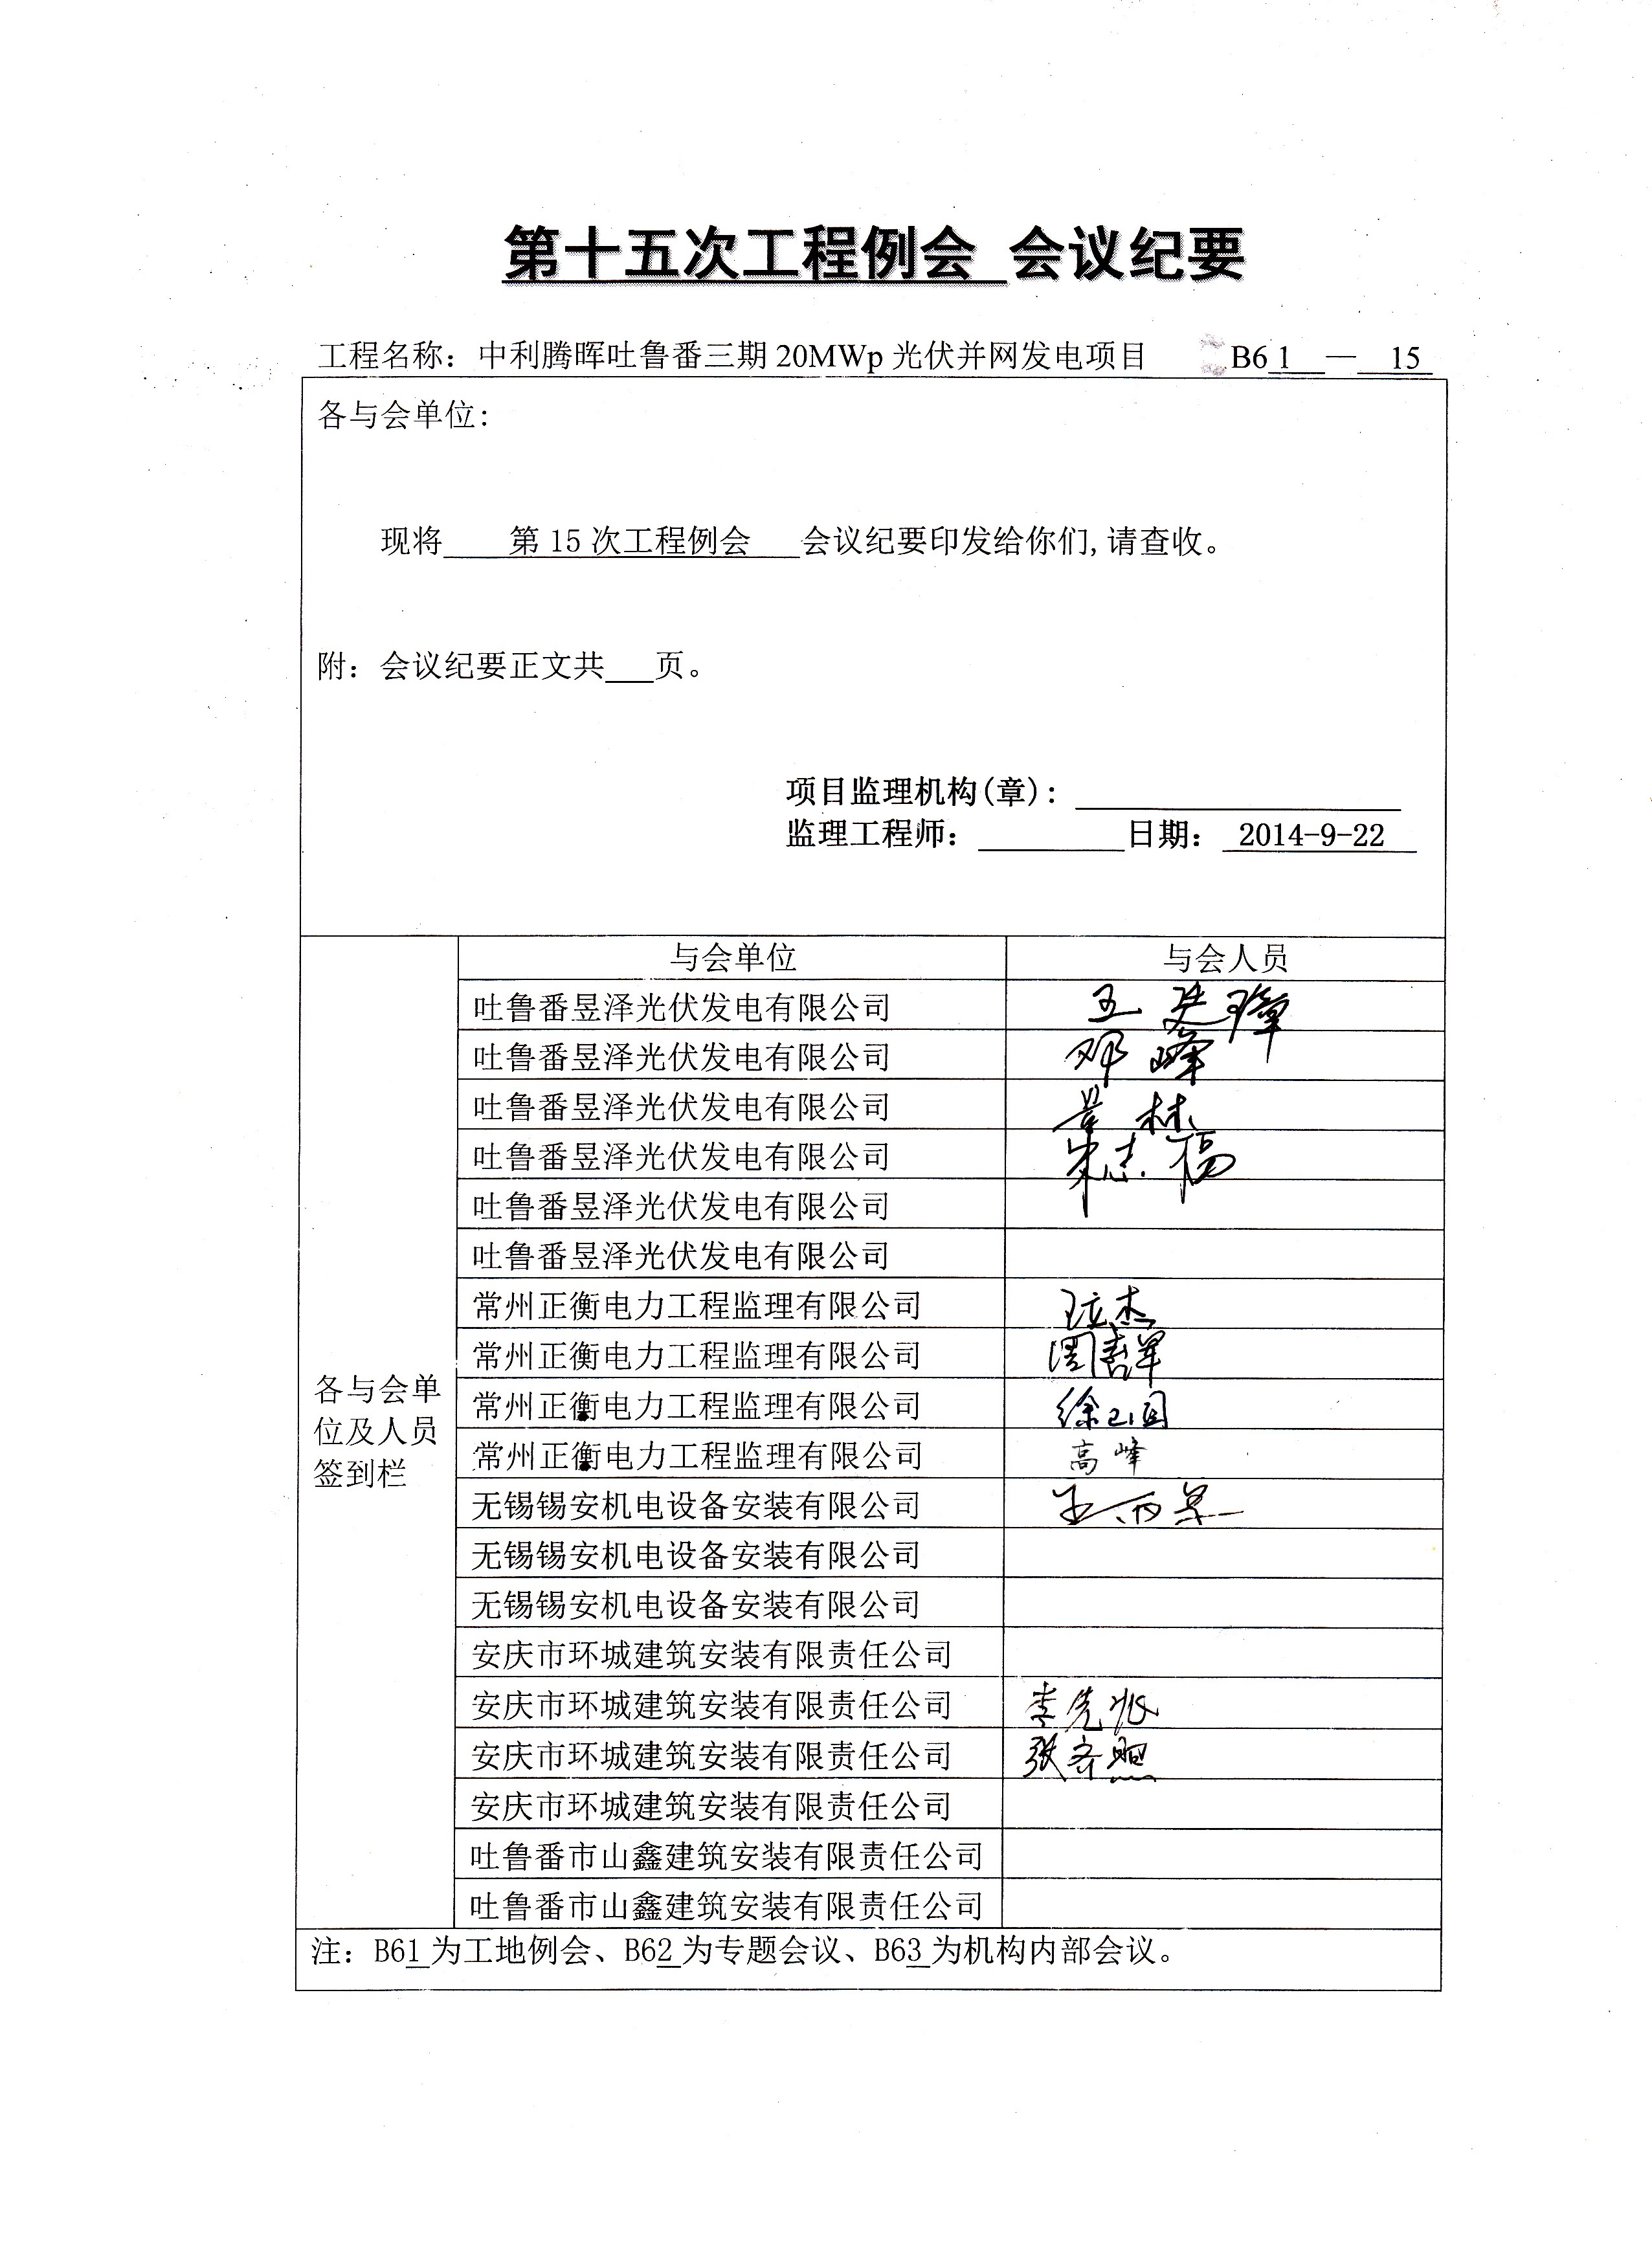 第十五次工程例会 会议纪要
工程名称：中利腾晖吐鲁番三期20MWp光伏并网发电项目 B61 — 15
各与会单位：
现将 第15次工程例会 会议纪要印发给你们，请查收。
附：会议纪要正文共___页。
项目监理机构(章)：
监理工程师： 日期： 2014-9-22
与会单位 与会人员
吐鲁番昱泽光伏发电有限公司
吐鲁番昱泽光伏发电有限公司 邓峰
吐鲁番昱泽光伏发电有限公司
吐鲁番昱泽光伏发电有限公司 朱志杨
吐鲁番昱泽光伏发电有限公司
吐鲁番昱泽光伏发电有限公司
常州正衡电力工程监理有限公司
常州正衡电力工程监理有限公司
常州正衡电力工程监理有限公司
常州正衡电力工程监理有限公司 高峰
各与会单
位及人员
签到栏
无锡锡安机电设备安装有限公司
无锡锡安机电设备安装有限公司
无锡锡安机电设备安装有限公司
安庆市环城建筑安装有限责任公司
安庆市环城建筑安装有限责任公司 李先兆
安庆市环城建筑安装有限责任公司 张齐照
安庆市环城建筑安装有限责任公司
吐鲁番市山鑫建筑安装有限责任公司
吐鲁番市山鑫建筑安装有限责任公司
注：B61为工地例会、B62为专题会议、B63为机构内部会议。